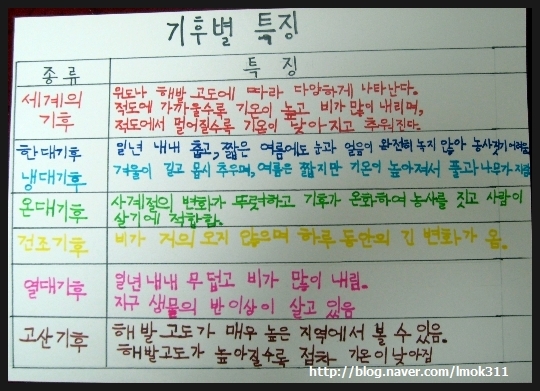 기후별 특징
종류 특징
세계의 기후
위도나 해발고도에 따라 다양하게 나타난다.
적도에 가까울수록 기온이 높고 비가 많이 내리며,
적도에서 멀어질수록 기온이 낮아지고 추워진다.
한대기후 일년 내내 춥고, 짧은 여름에도 눈과 얼음이 완전히 녹지 않아 농사짓기 어려움
냉대기후 겨울이 길고 몹시 추우며, 여름은 짧지만 기온이 높아져서 풀과 나무가 자람
온대기후 사계절의 변화가 뚜렷하고 기후가 온화하여 농사를 짓고 사람이
살기에 적합함.
건조기후 비가 거의 오지 않으며 하루 동안의 긴 변화가 옴.
열대기후 일년내내 무덥고 비가 많이 내림.
지구 생물의 반이상이 살고 있음
고산기후 해발고도가 매우 높은 지역에서 볼 수 있음.
해발고도가 높아질수록 점차 기온이 낮아짐
http://blog.naver.com/lmok311